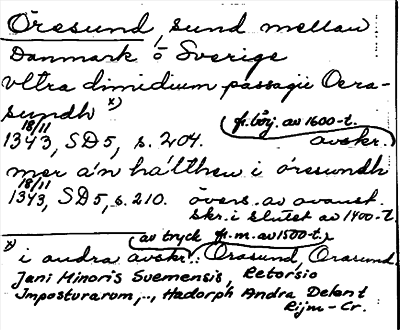 Öresund, sund mellan
Danmark o Sverige
vltra dimidium passagii Oera-
sundh x)
(fr. börj. av 1600-t.
18/11
1343, SD5, s. 204. avskr.)
mer än hälthen i öresundh
18/11
1343, SD5, s. 210. övers. av ovanst.
skr. i slutet av 1400-t.
(av tryck fr. m. av 1500-t.)
x) i andra avskr.: Orasund, Orarumd
Jani Minoris Suemensis, Retorsio
Imposturarum,.., Hadorph Andra Delen t
Rijm-Cr.